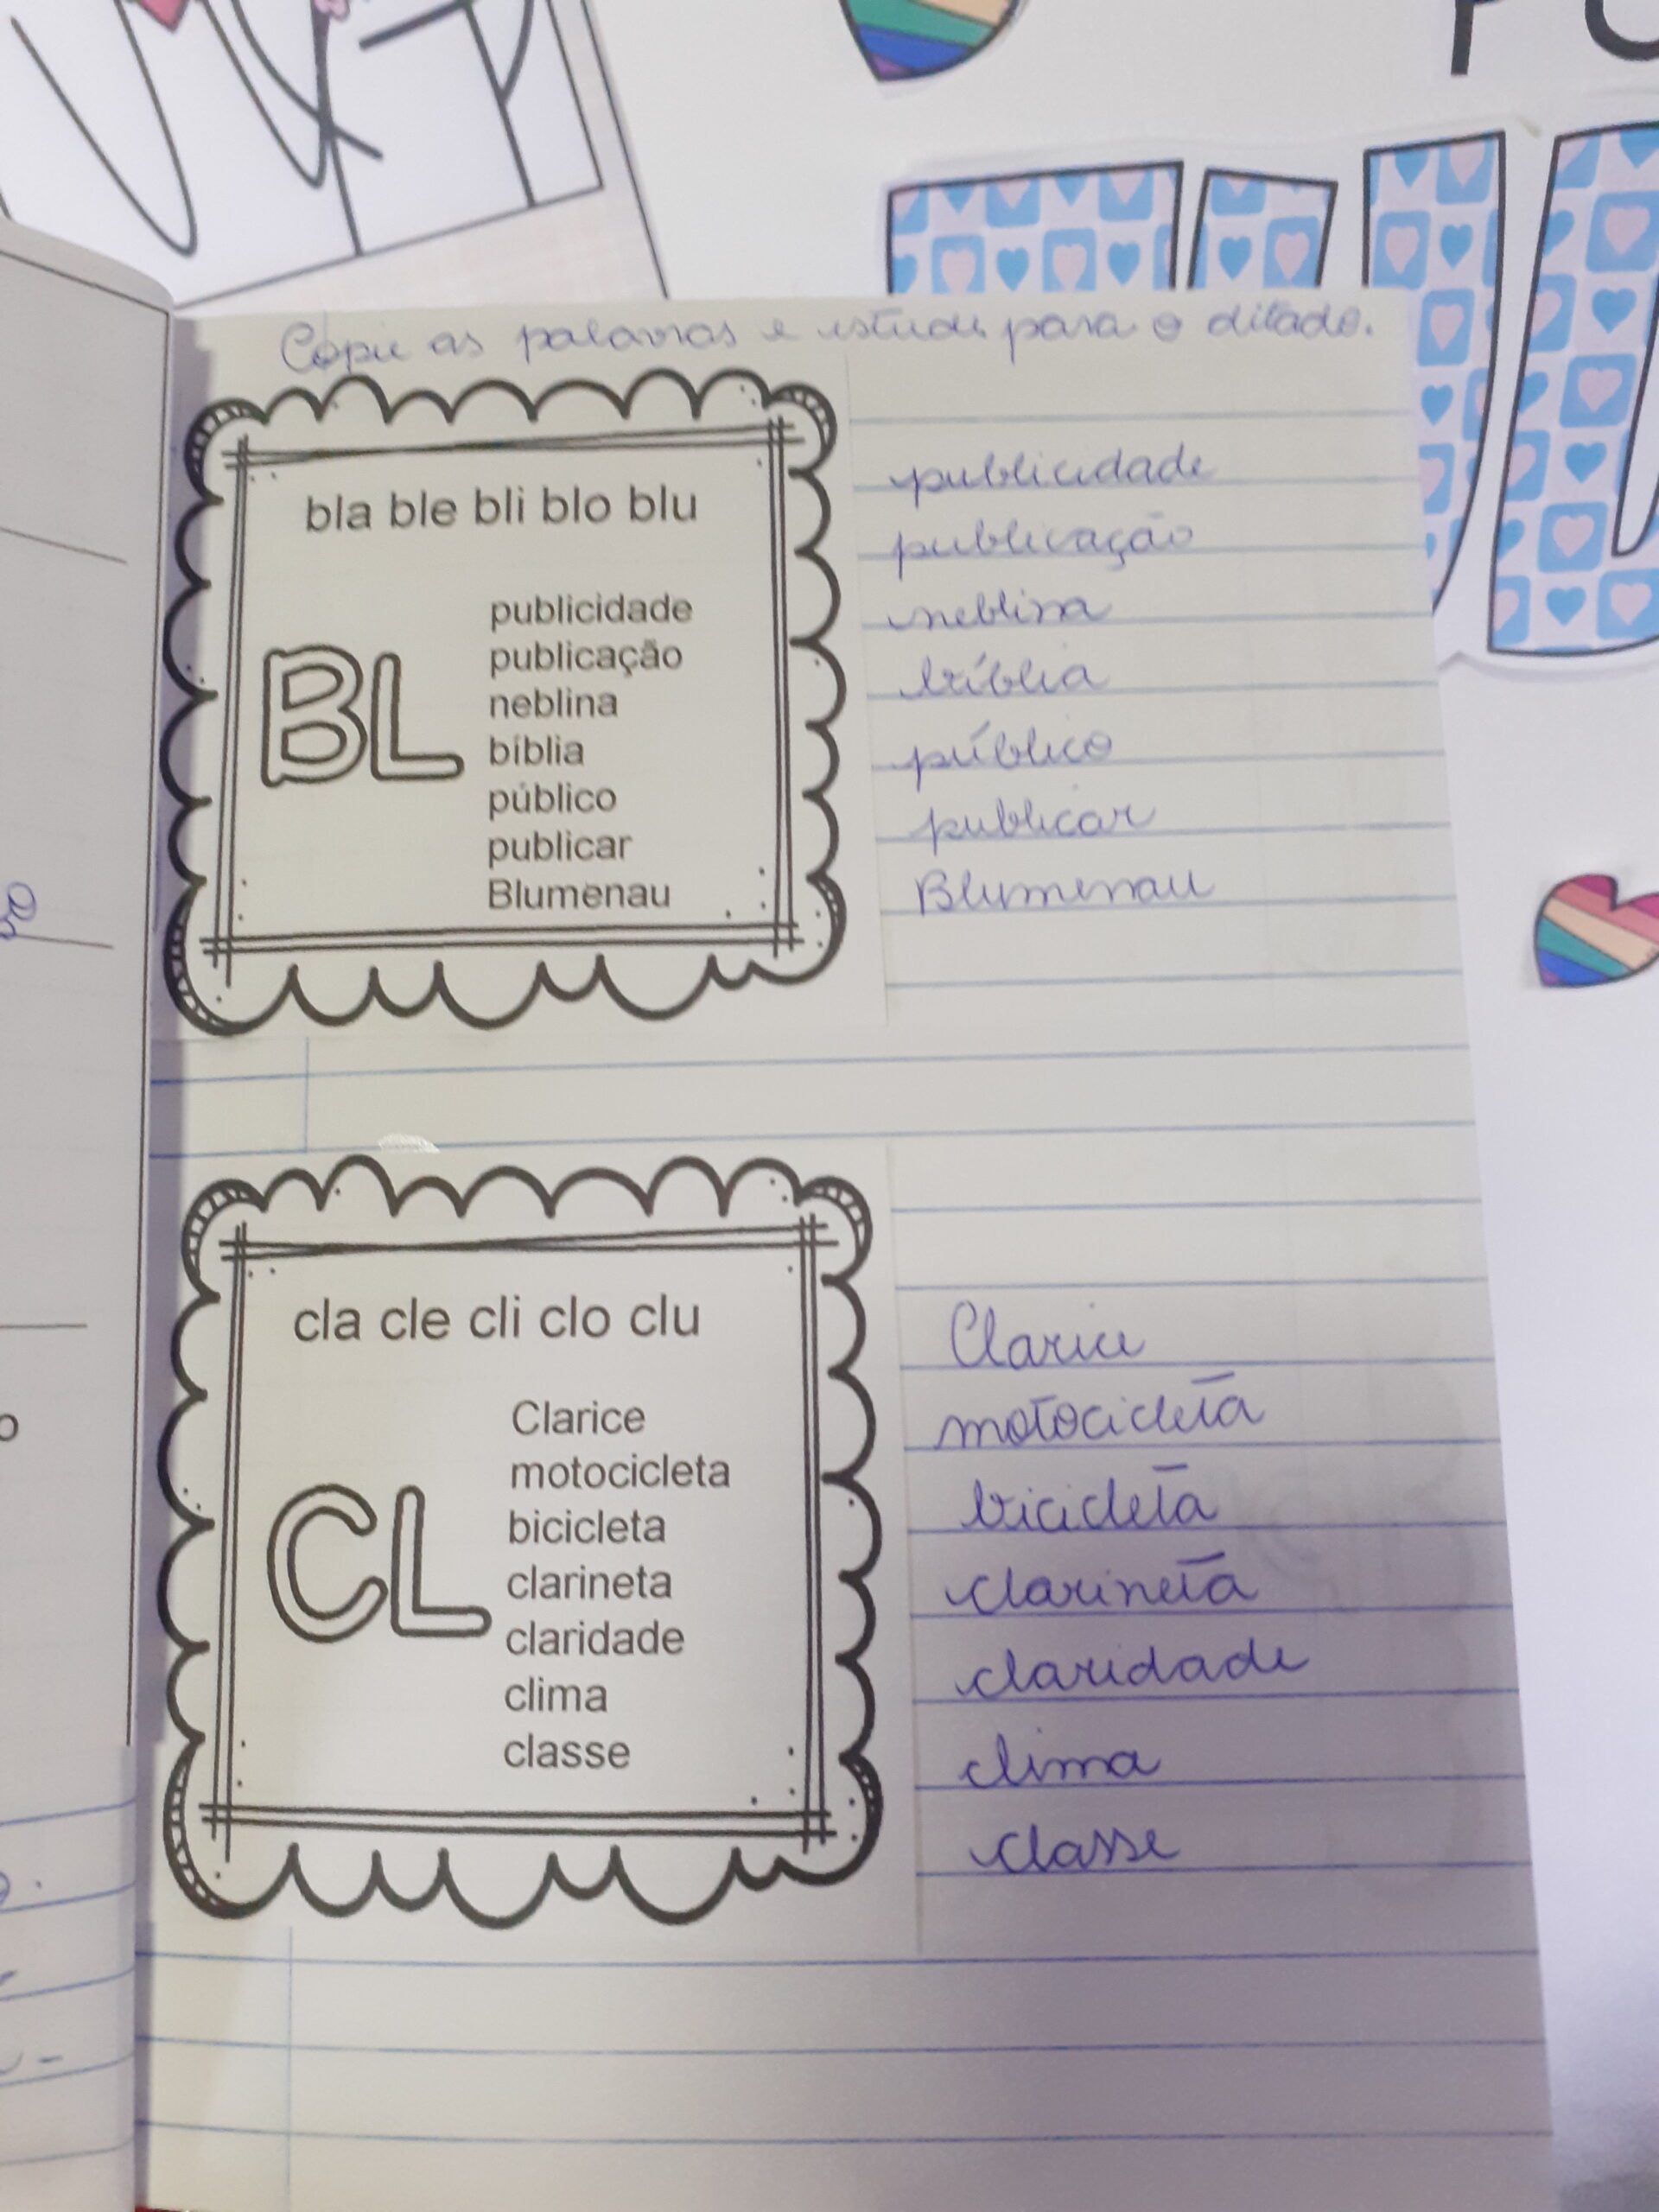 Copie as palavras e estude para o ditado.
bla ble bli blo blu
BL
publicidade
publicação
neblina
bíblia
público
publicar
Blumenau
publicidade
publicação
neblina
bíblia
público
publicar
Blumenau
cla cle cli clo clu
CL
Clarice
motocicleta
bicicleta
clarineta
claridade
clima
classe
Clarice
motocicleta
bicicleta
clarineta
claridade
clima
classe